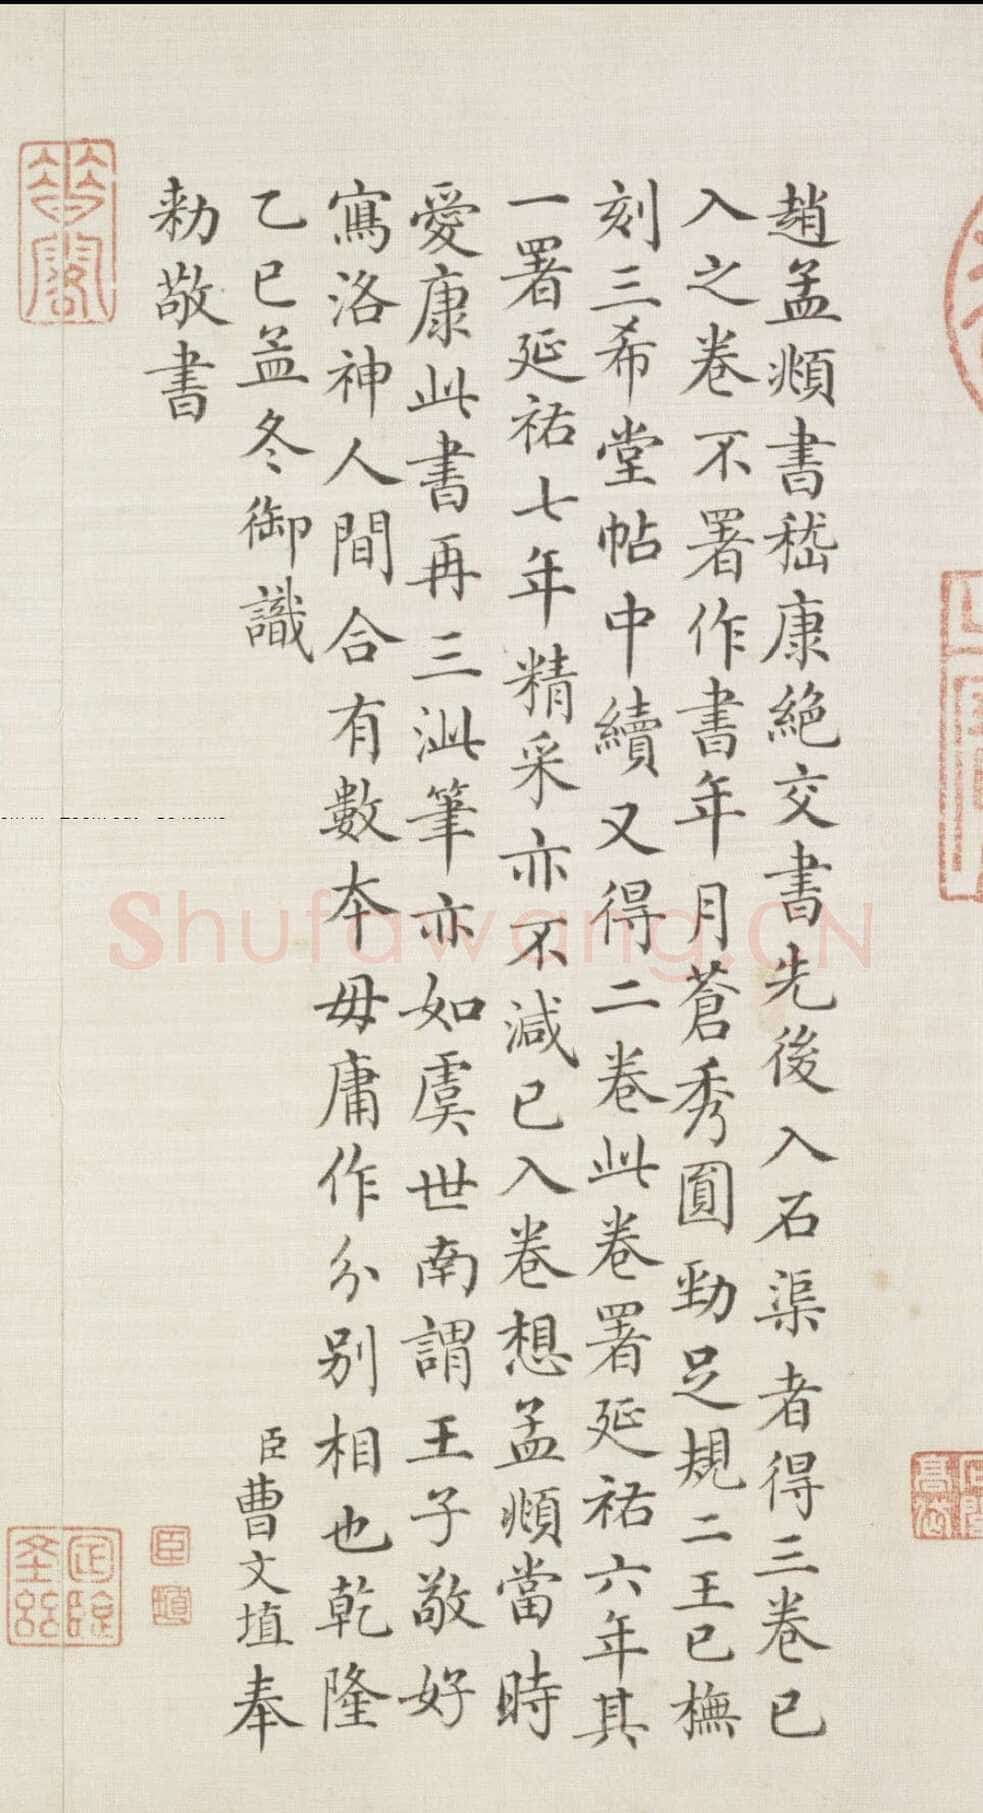 趙孟頫書嵇康絶交書先後入石渠者得三卷已
入之卷不署作書年月蒼秀圓勁足規二王已橅
刻三希堂帖中續又得二卷此卷署延祐六年其
一署延祐七年精采亦不減已入卷想孟頫當時
愛康此書再三泚筆亦如虞世南謂王子敬好
寫洛神人間合有數本毋庸作分別相也乾隆
乙巳孟冬御識
臣曹文埴奉
勅敬書
臣
埴
Shufawang.CN